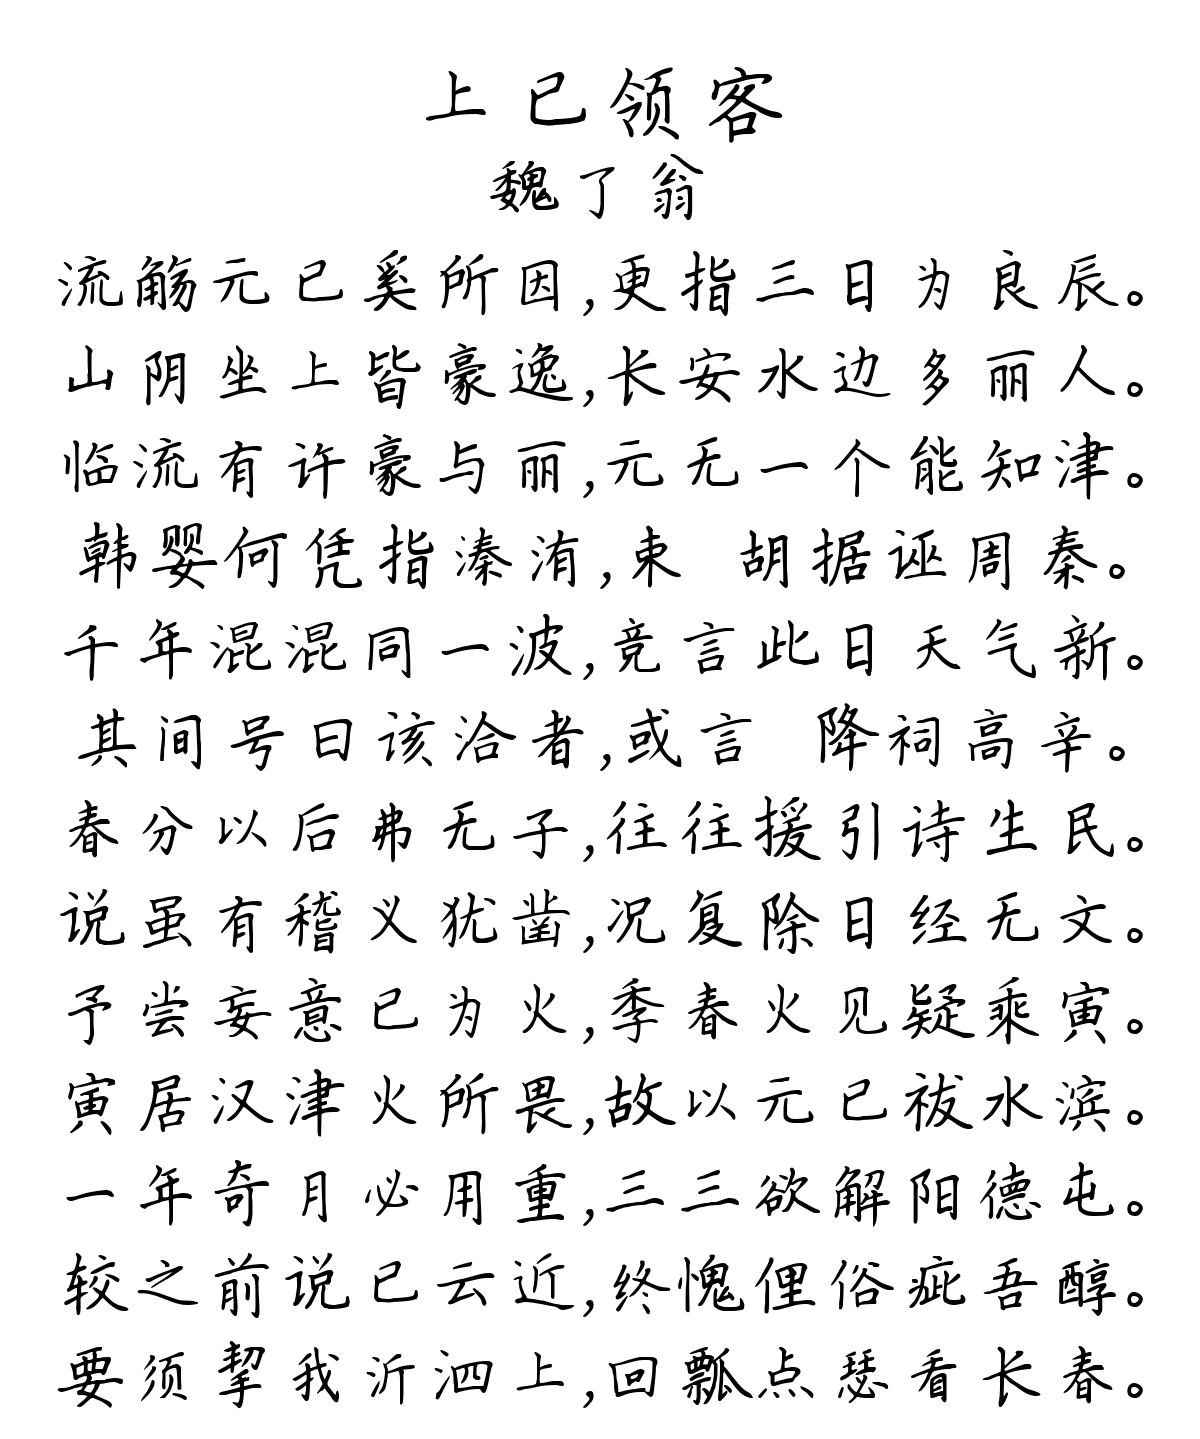 上已领客
魏了翁
流觞元已奚所因,更指三日为良辰。
山阴坐上皆豪逸,长安水边多丽人。
临流有许豪与丽,元无一个能知津。
韩婴何凭指溱洧,束 胡据诬周秦。
千年混混同一波,竞言此日天气新。
其间号曰该洽者,或言 降祠高辛。
春分以后弗无子,往往援引诗生民。
说虽有稽义犹凿,况复除日经无文。
予尝妄意已为火,季春火见疑乘寅。
寅居汉津火所畏,故以元已祓水滨。
一年奇月必用重,三三欲解阳德屯。
较之前说已云近,终愧俚俗疵吾醇。
要须挈我沂泗上,回瓢点瑟看长春。